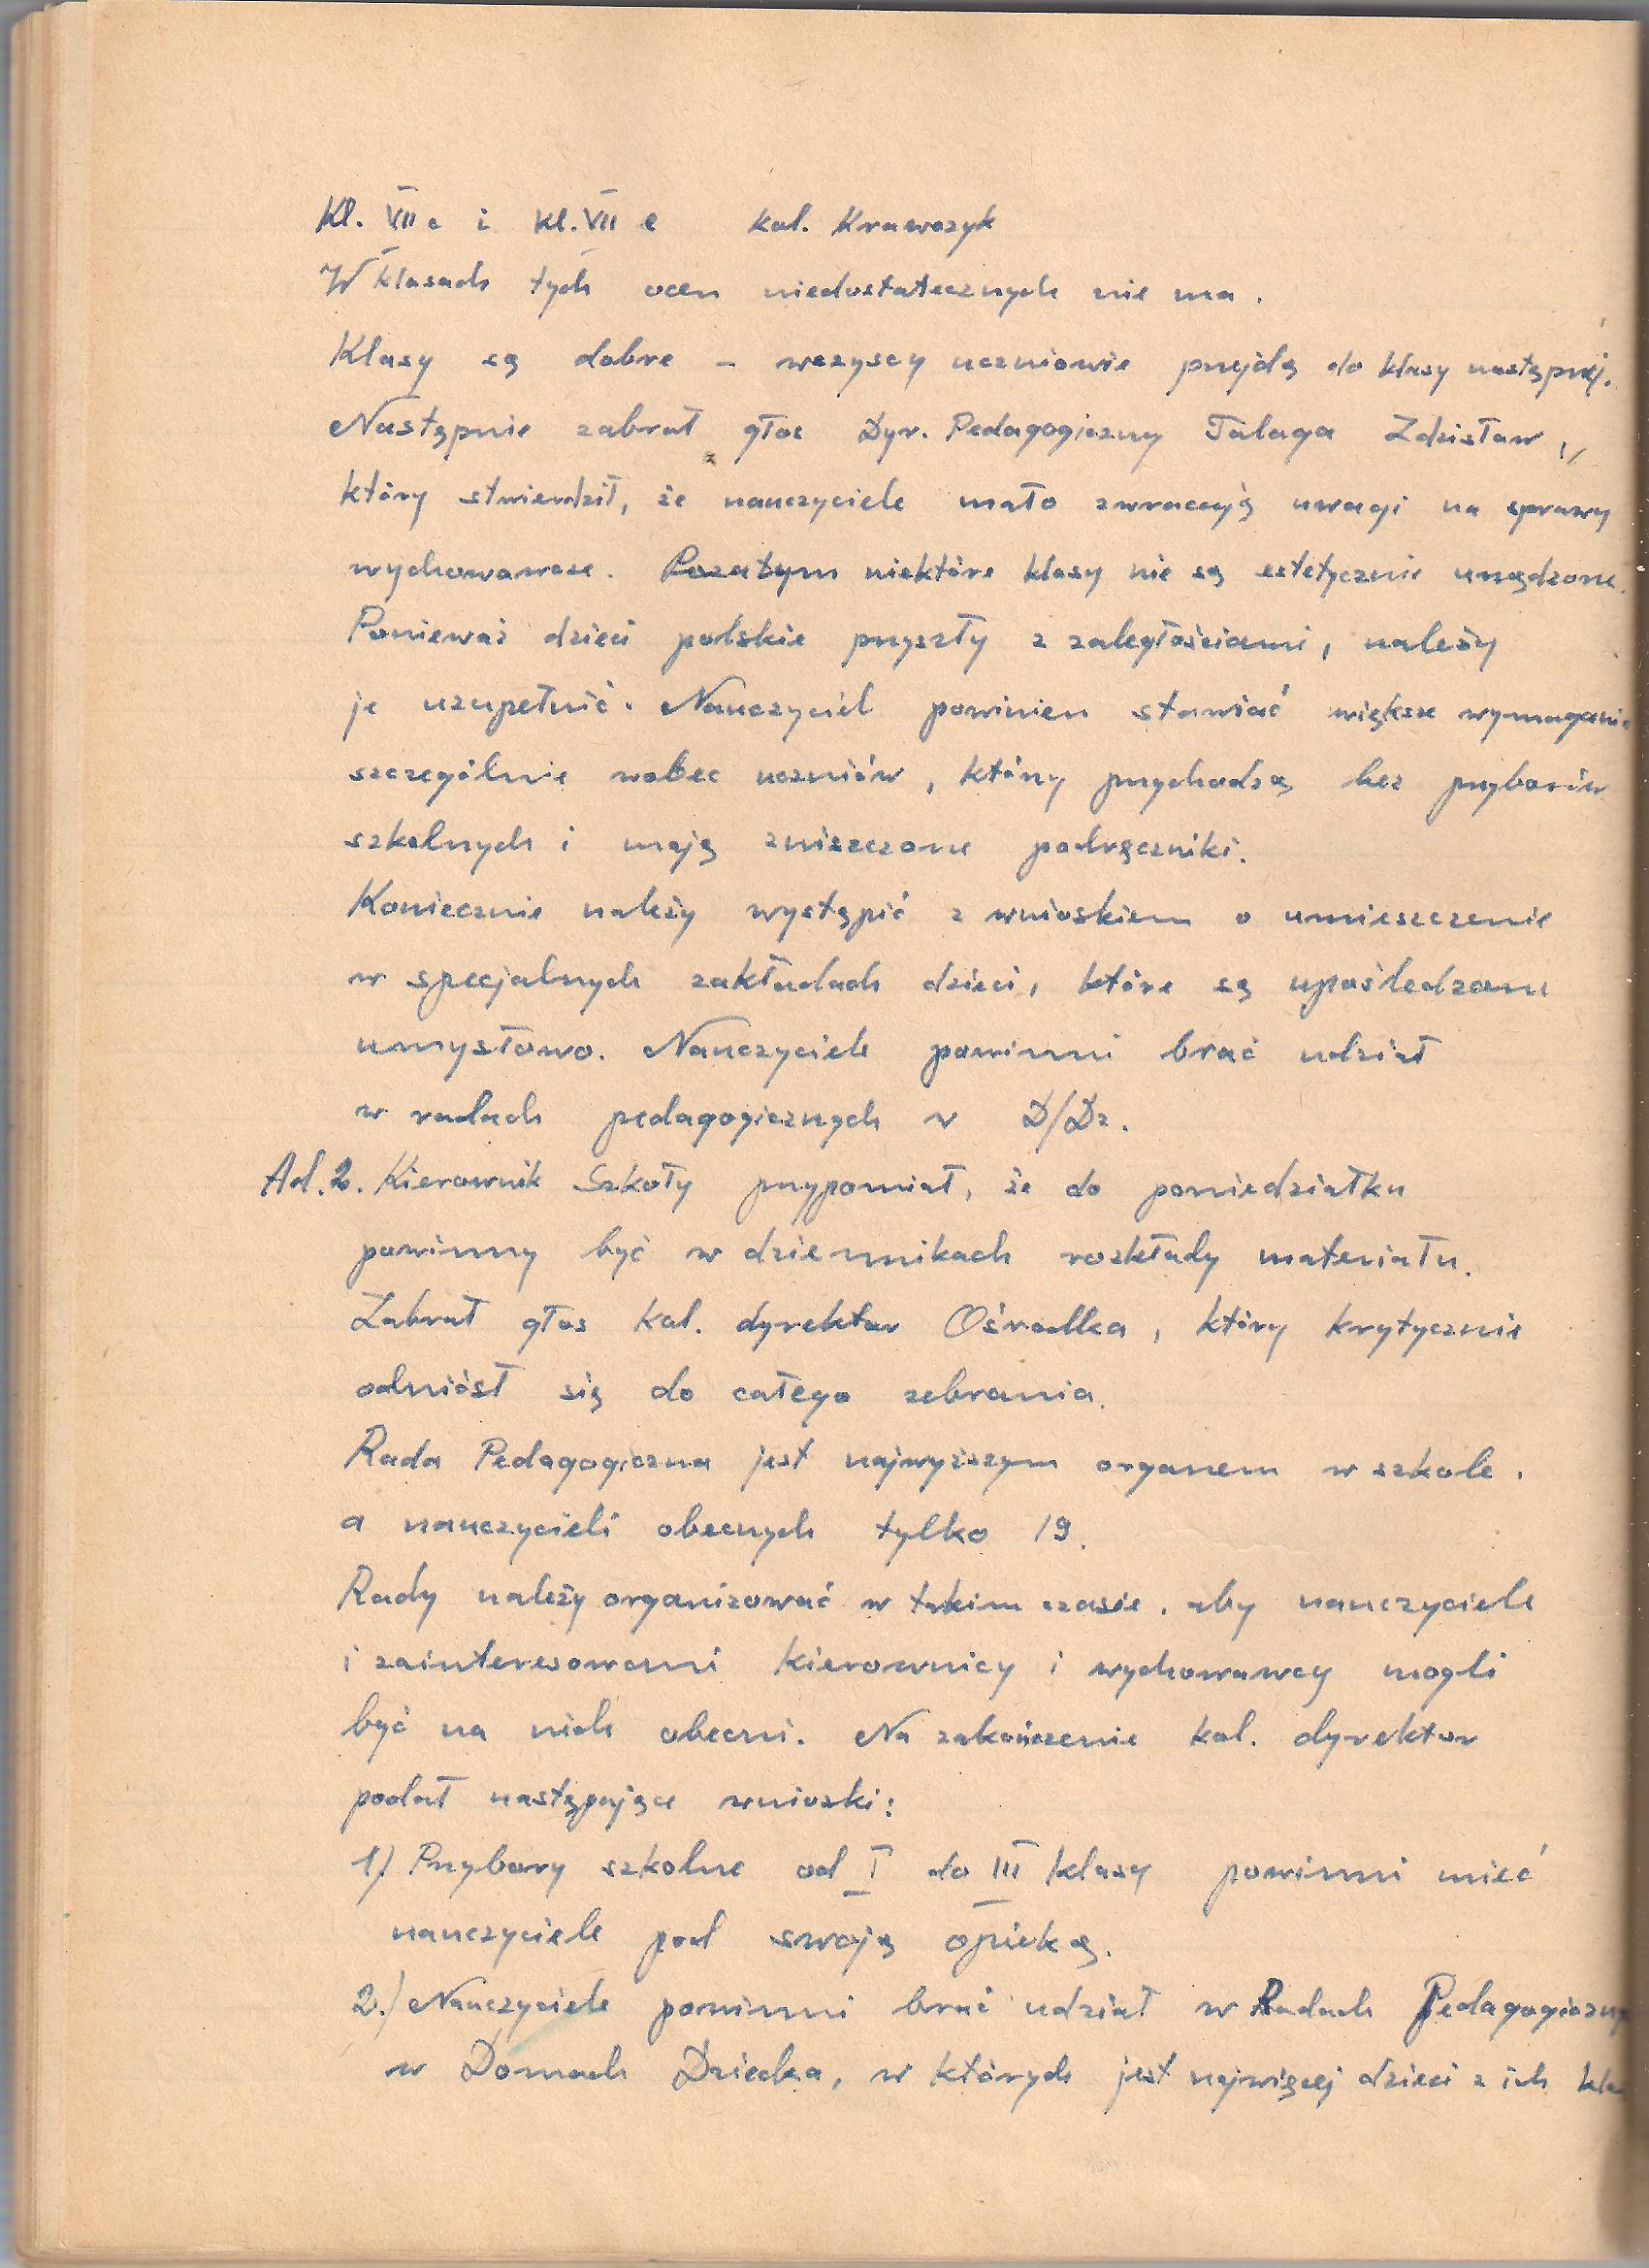 Kl. VII c i Kl. VII e kol. Krawczyk
W klasach tych ocen niedostatecznych nie ma.
Klasy są dobre – wszyscy uczniowie przejdą do klasy następnej.
Następnie zabrał głos Dyr. Pedagogiczny Talaga Zdzisław,
który stwierdził, że nauczyciele mało zwracają uwagi na sprawy
wychowawcze. Pozatym niektóre klasy nie są estetycznie urządzone.
Ponieważ dzieci polskie przyszły z zaległościami, należy
je uzupełnić. Nauczyciel powinien stawiać większe wymagania
szczególnie wobec uczniów, którzy przychodzą bez przyborów
szkolnych i mają zniszczone podręczniki.
Koniecznie należy wystąpić z wnioskiem o umieszczenie
w specjalnych zakładach dzieci, które są upośledzone
umysłowo. Nauczyciele powinni brać udział
w radach pedagogicznych w D/Dz.
Ad. 2. Kierownik Szkoły przypomiał, że do poniedziałku
powinny być w dziennikach rozkłady materiału.
Zabrał głos kol. dyrektor Ośrodka, który krytycznie
odniósł się do całego zebrania.
Rada Pedagogiczna jest najwyższym organem w szkole.
a nauczycieli obecnych tylko 19.
Rady należy organizować w takim czasie, aby nauczyciele
i zainteresowani kierownicy i wychowawcy mogli
być na nich obecni. Na zakończenie kol. dyrektor
podał następujące wnioski:
1) Przybory szkolne od I do III klasy powinni mieć
nauczyciele pod swoją opieką.
2.) Nauczyciele powinni brać udział w Radach
w Domach Dziecka, w których jest najwięcej dzieci z ich